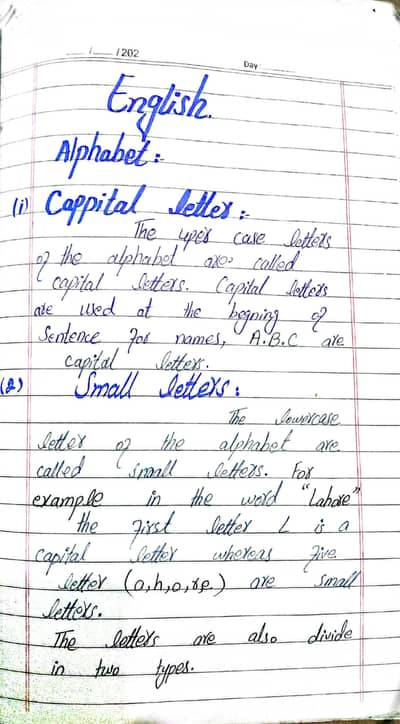 / /202
Day
English.
Alphabet :-
(i) Cappital letter :-
The uper case letters
of the alphabet are called
capital letters. Capital letters
are used at the begning of
Sentence for names, A.B.C are
capital letters.
(2) Small letters :
The lowercase
letter of the alphabet are
called small letters. For
example in the word "Lahore"
the first letter L is a
capital letter whereas five
letter (a,h,o,r,e.) are small
letters.
The letters are also divide
in two types.